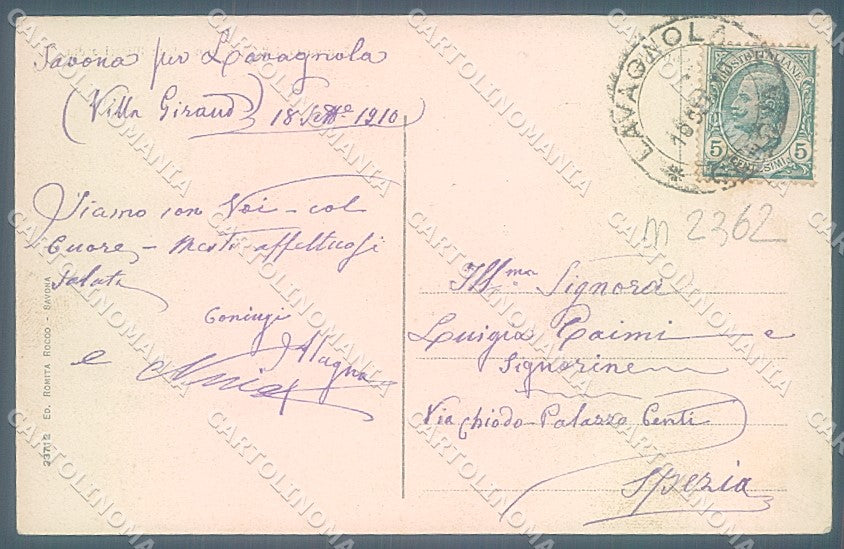 Savona per Lavagnola
(Villa Giraud) 18 Sett.e 1910
Siamo con Voi - col
Cuore - Mesti affettuosi
saluti
Coniugi
Magno
e
23712 ED. ROMITA ROCCO - SAVONA
LAVAGNOLA
POSTE ITALIANE
5 CENTESIMI 5
M 2362
Ill.ma Signora
Luigia Caimi e
Signorine
Via Chiodo - Palazzo Centi
Spezia
CARTOLINOMANIA